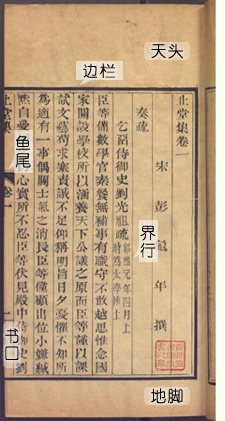 天头
边栏
止堂集卷一
宋 彭龜年 撰
奏疏
乞留侍御史劉光祖疏 紹熙元年四月上 時為太學博士
臣等備數學官素餐無補事有職守不敢越思惟念國
家開設學校所以涵養天下公議之原而臣等謹以課
試文藝苟求塞責誠不足仰稱明旨日夕憂懼不知所
為適有一事偶關士氣之消長臣等僅顧出位小嫌緘
默自愛 心實所不忍臣等伏見殿中侍御史劉
止堂集
卷一
鱼尾
界行
书口
地脚